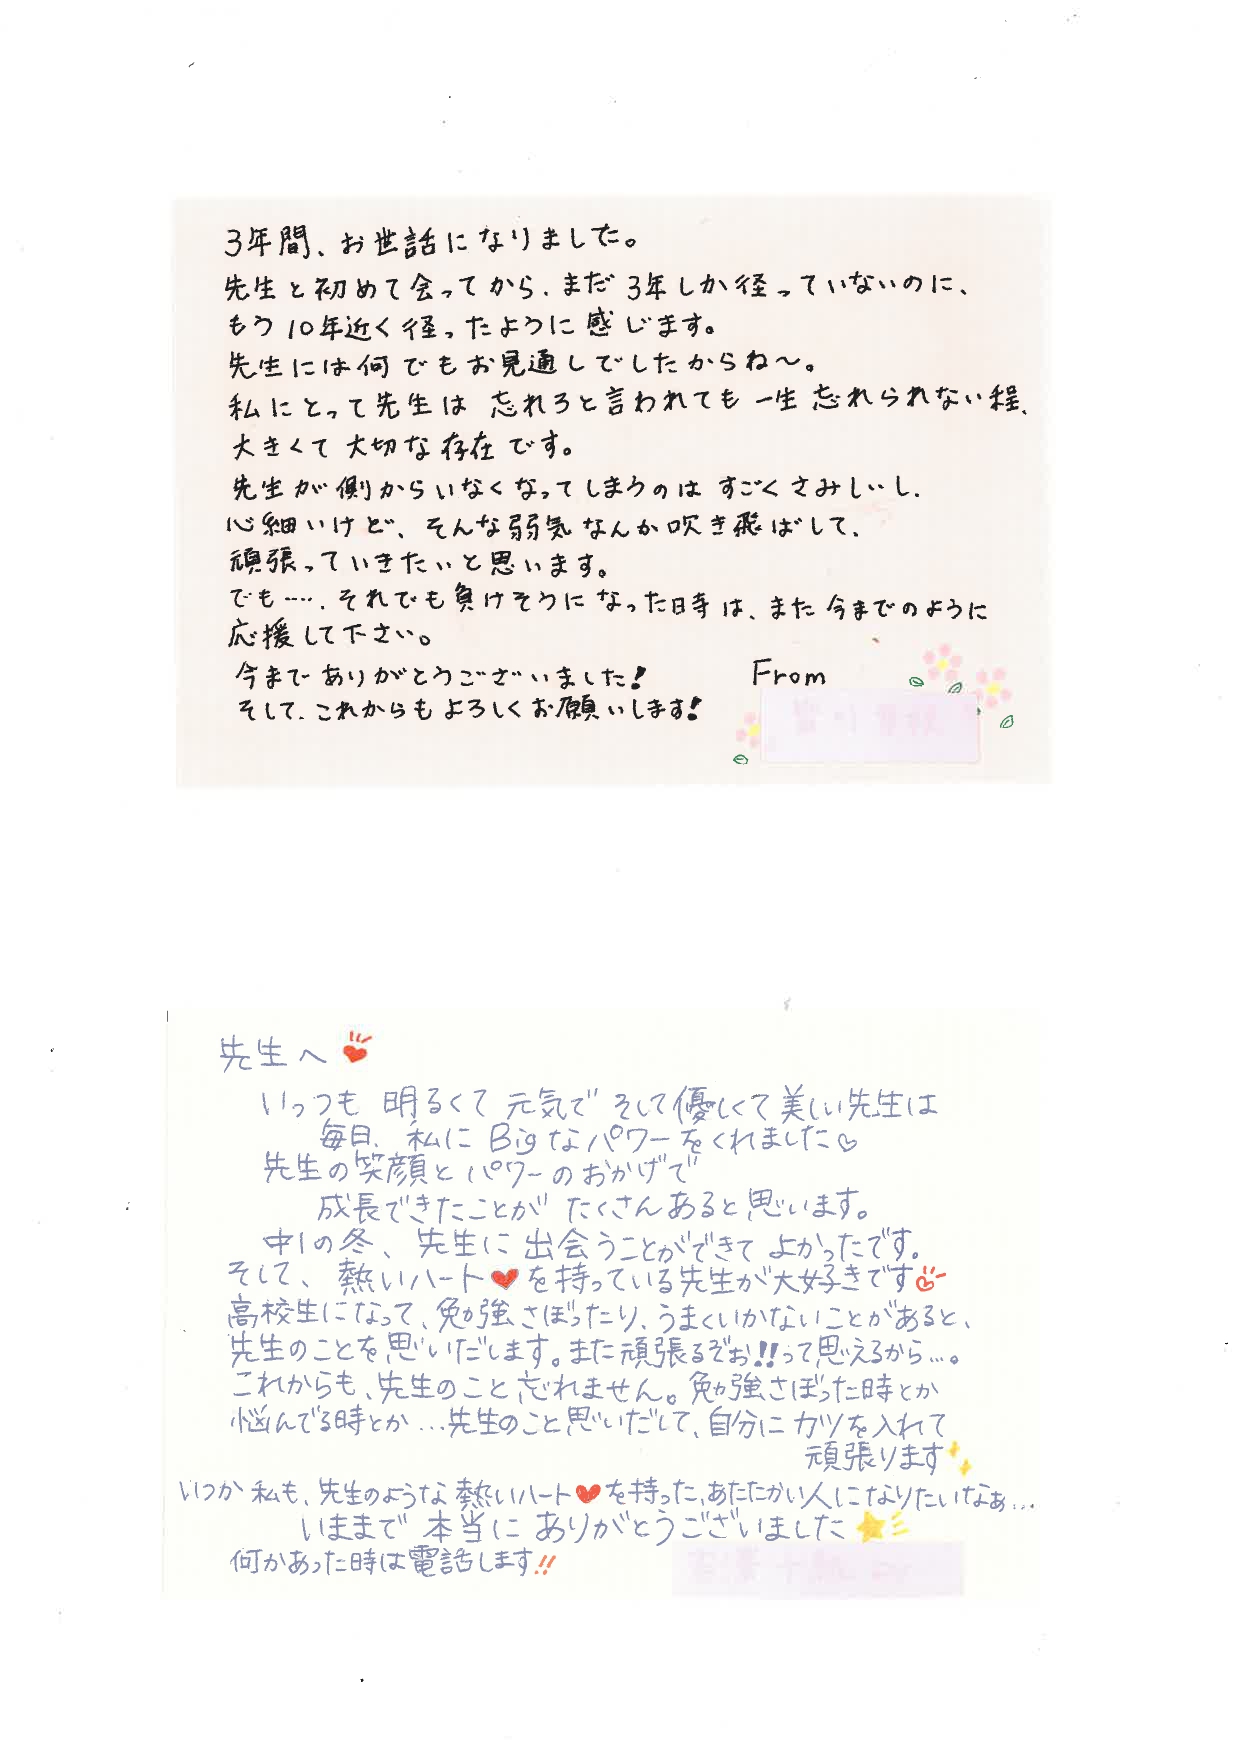 3年間、お世話になりました。
先生と初めて会ってから、まだ3年しか径っていないのに、
もう10年近く径ったように感じます。
先生には何でもお見通しでしたからね〜。
私にとって先生は忘れろと言われても一生忘れられない程、
大きくて大切な存在です。
先生が側からいなくなってしまうのはすごくさみしいし、
心細いけど、そんな弱気なんか吹き飛ばして、
頑張っていきたいと思います。
でも…、それでも負けそうになった時は、また今までのように
応援して下さい。
今までありがとうございました!
そして、これからもよろしくお願いします!
From
先生へ
いつも明るくて元気でそして優しくて美しい先生は
毎日、私にBigなパワーをくれました♡
先生の笑顔とパワーのおかげで
成長できたことがたくさんあると思います。
中1の冬、先生に出会うことができてよかったです。
そして、熱いハート♥を持っている先生が大好きです
高校生になって、勉強さぼったり、うまくいかないことがあると、
先生のことを思いだします。また頑張るぞぉ!!って思えるから…。
これからも、先生のこと忘れません。勉強さぼった時とか
悩んでる時とか…先生のこと思いだして、自分にカツを入れて
頑張ります
いつか私も、先生のような熱いハート♥を持った、あたたかい人になりたいなぁ…
いままで本当にありがとうございました
何かあった時は電話します!!